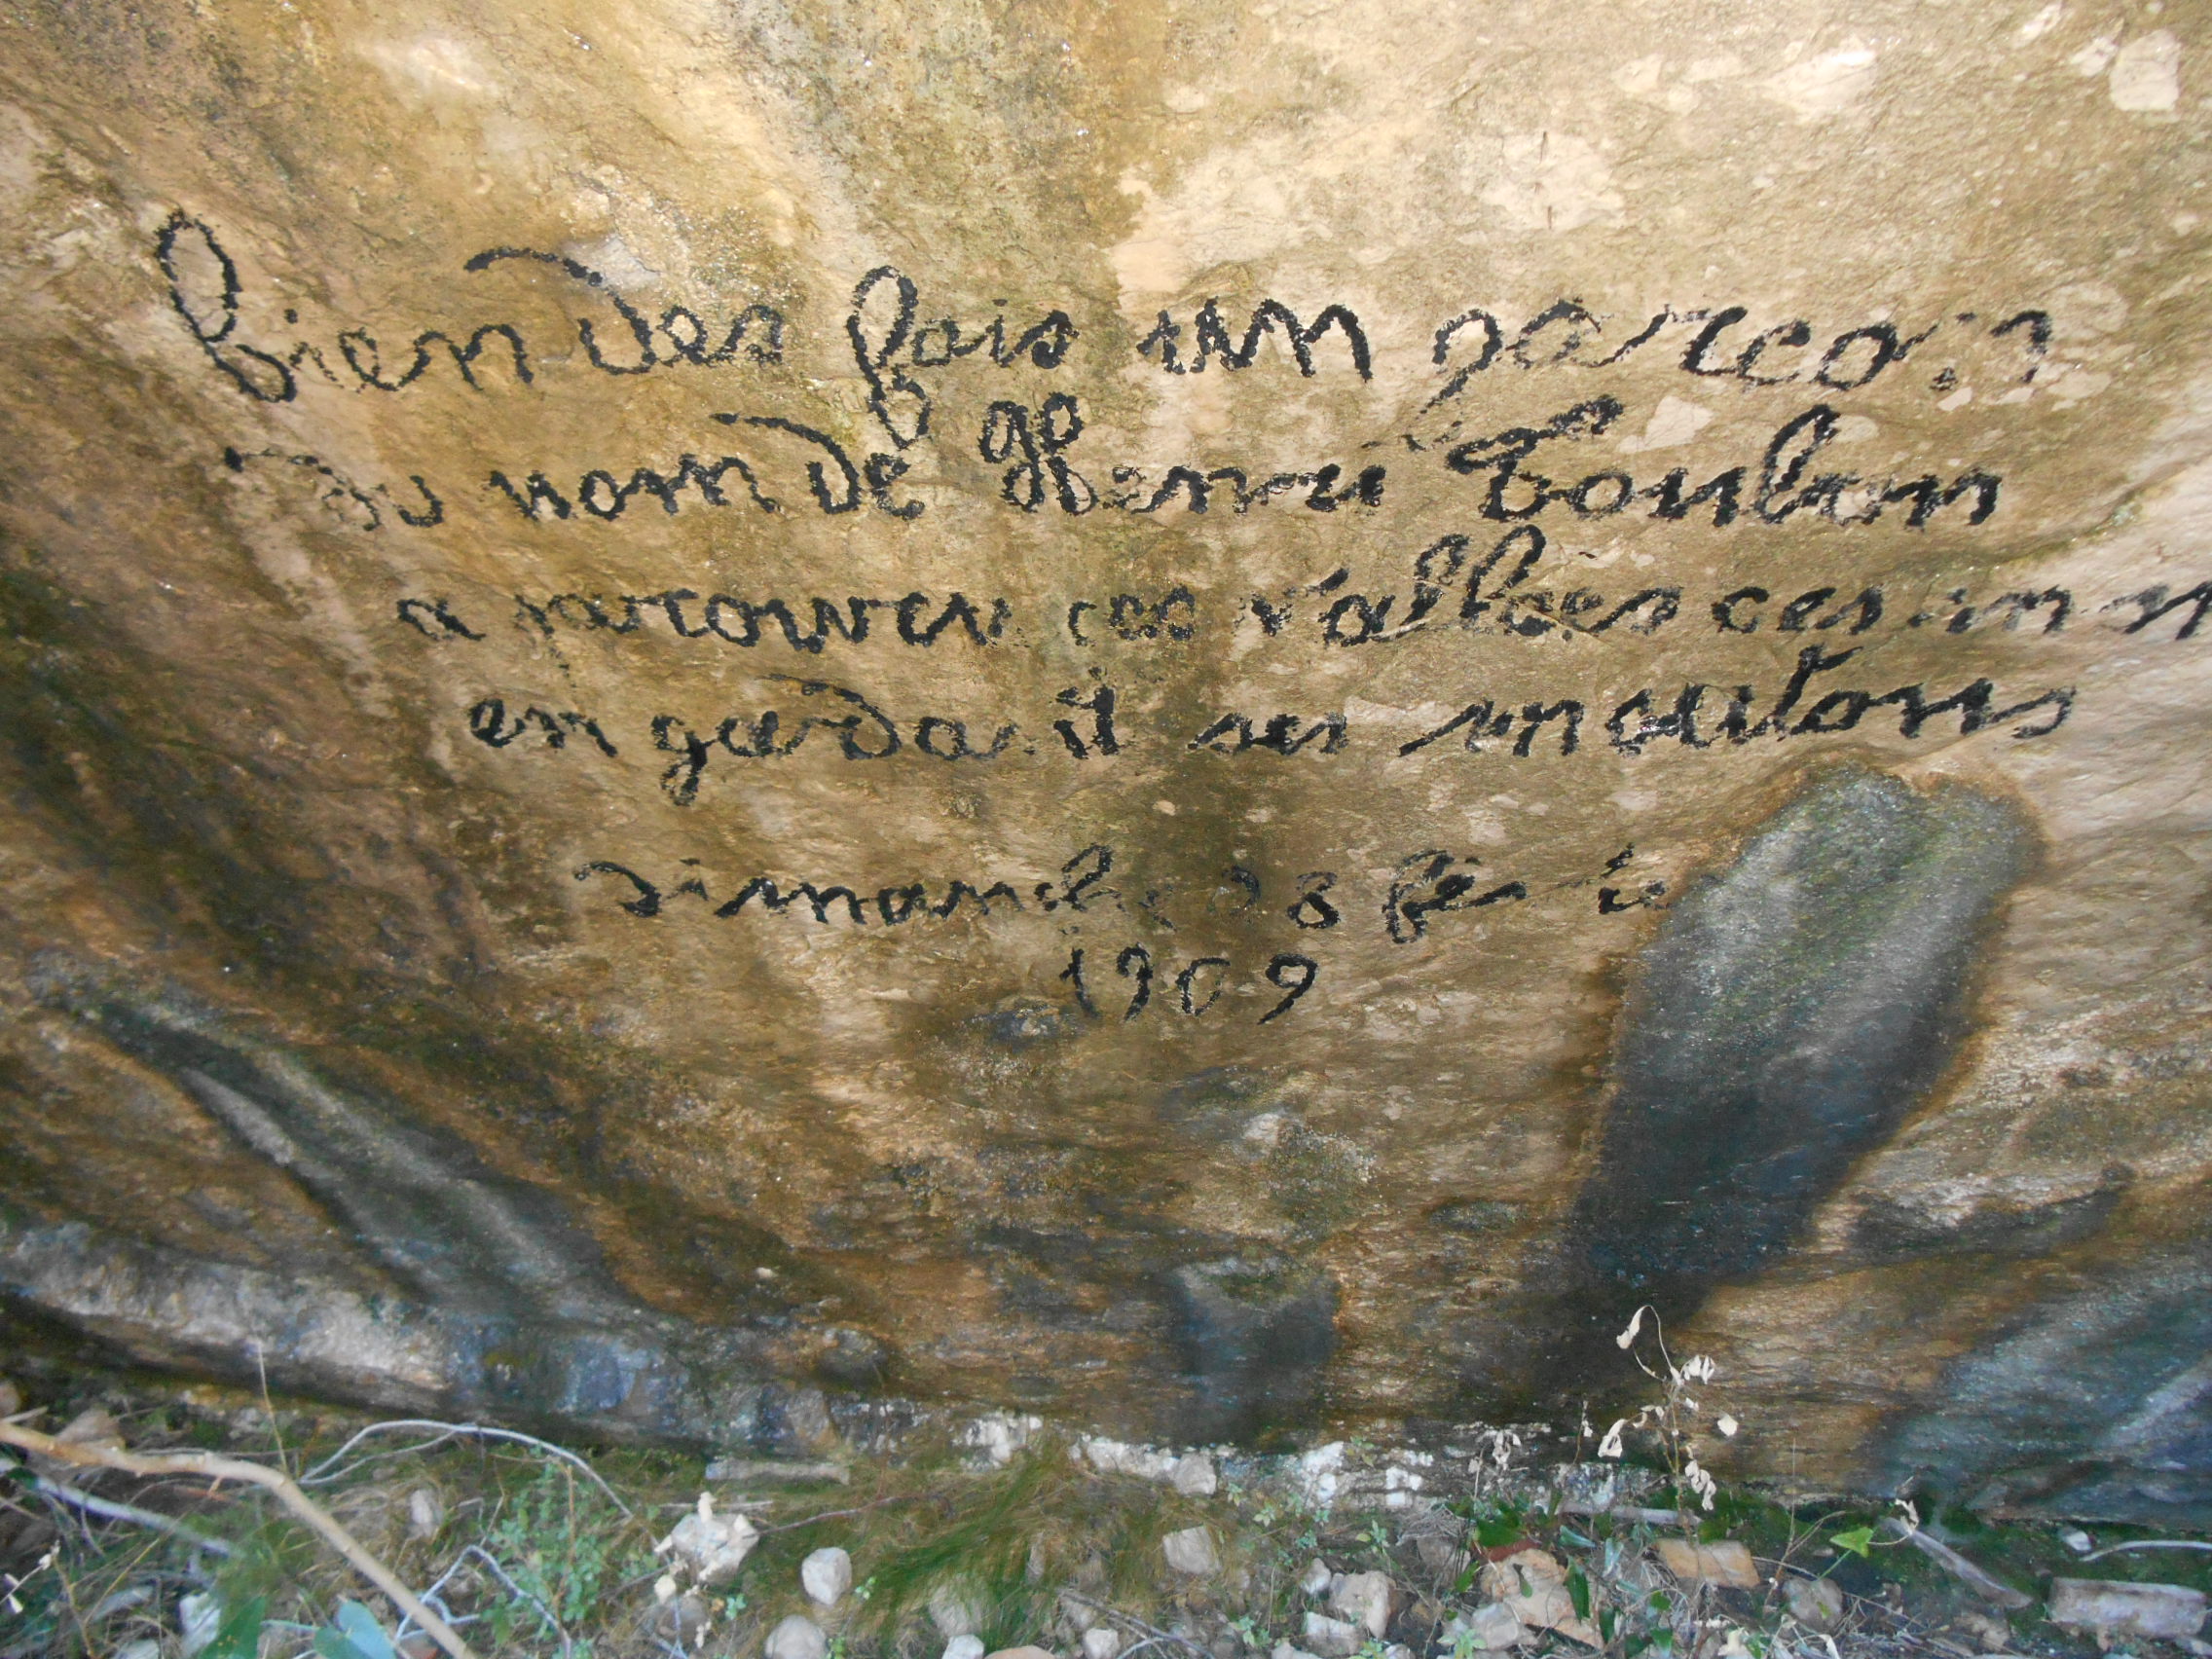 bien des fois un garcon
du nom de Henri Toulon
a parcouru ces vallees ces
en gardant ses moutons
dimanche 28
1909